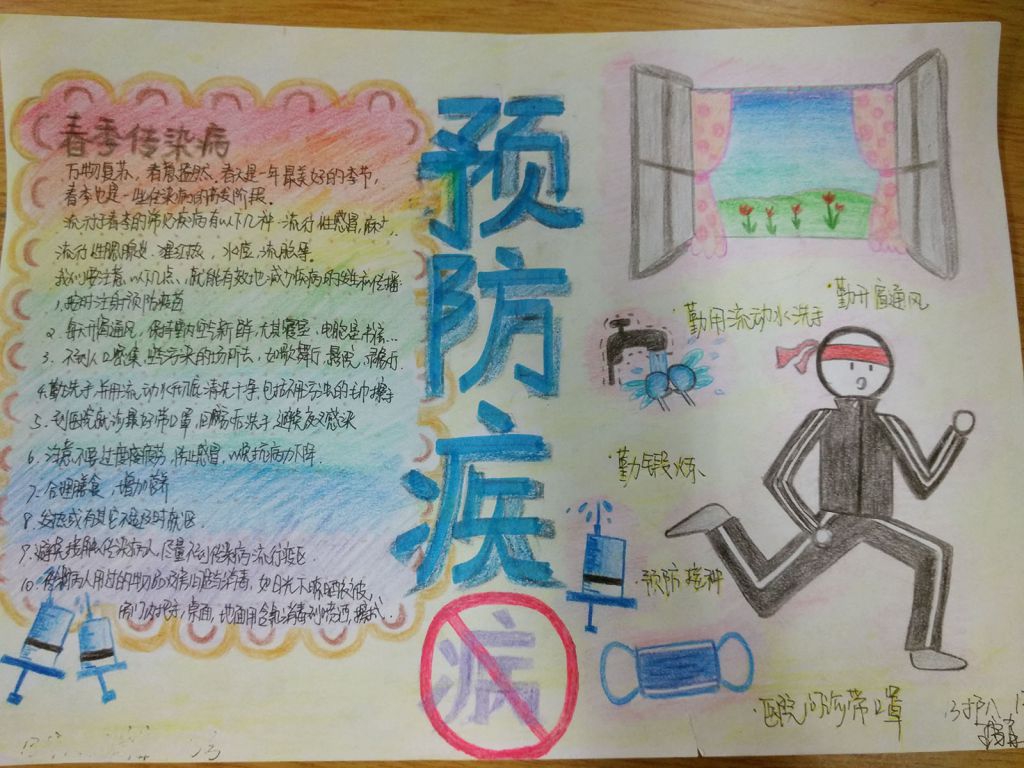 春季传染病
万物复苏、春意盎然、春天是一年最美好的季节,
春季也是一些传染病的高发阶段。
流行于春季的常见疾病有以下几种:流行性感冒,麻疹,
流行性腮腺炎、猩红热,水痘,流脑等。
我们要注意以下几点,就能有效地减少疾病的发生和传播:
1,按时注射预防疫苗
2、每天开窗通风,保持室内空气新鲜,尤其寝室、电脑室、
3、不到人口密集、空气污染的场所去,如歌舞厅、
4.勤洗手,并用流动水彻底清洗干净,包括不用污浊的毛巾擦手
5、到医院就诊最好带口罩,回家后洗手,避免交叉感染
6、注意不要过度疲劳,防止感冒,以免抗病力下降.
7、合理膳食,增加营养
8、发热或有其它不适及时就医.
9.避免接触传染病人,尽量不到传染病流行疫区.
10.传染病人用过的物品及房间适当消毒,如日光下晾晒衣被,
房门内拉手,桌面,地面用含氯消毒剂喷洒,擦拭.
预防疾病
勤开窗通风
勤用流动水洗手
勤锻炼
预防接种
医院问诊带口罩